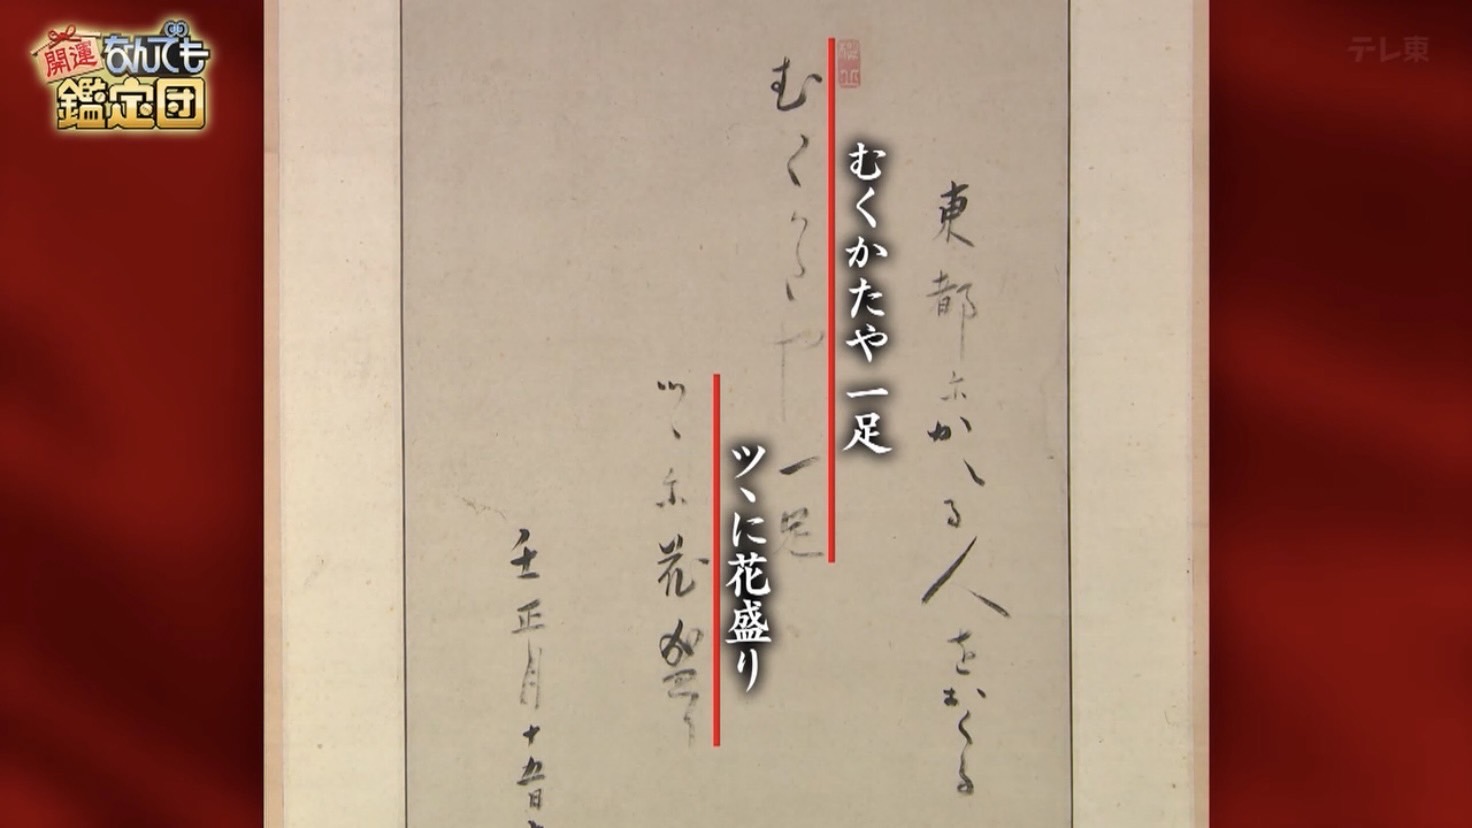 開運
なんでも
鑑定団
テレ東
東都にかへる人をおくる
むくかたや一足
むくかたや 一足
ツヽに花盛り
ツヽに花盛り
壬正月十五日